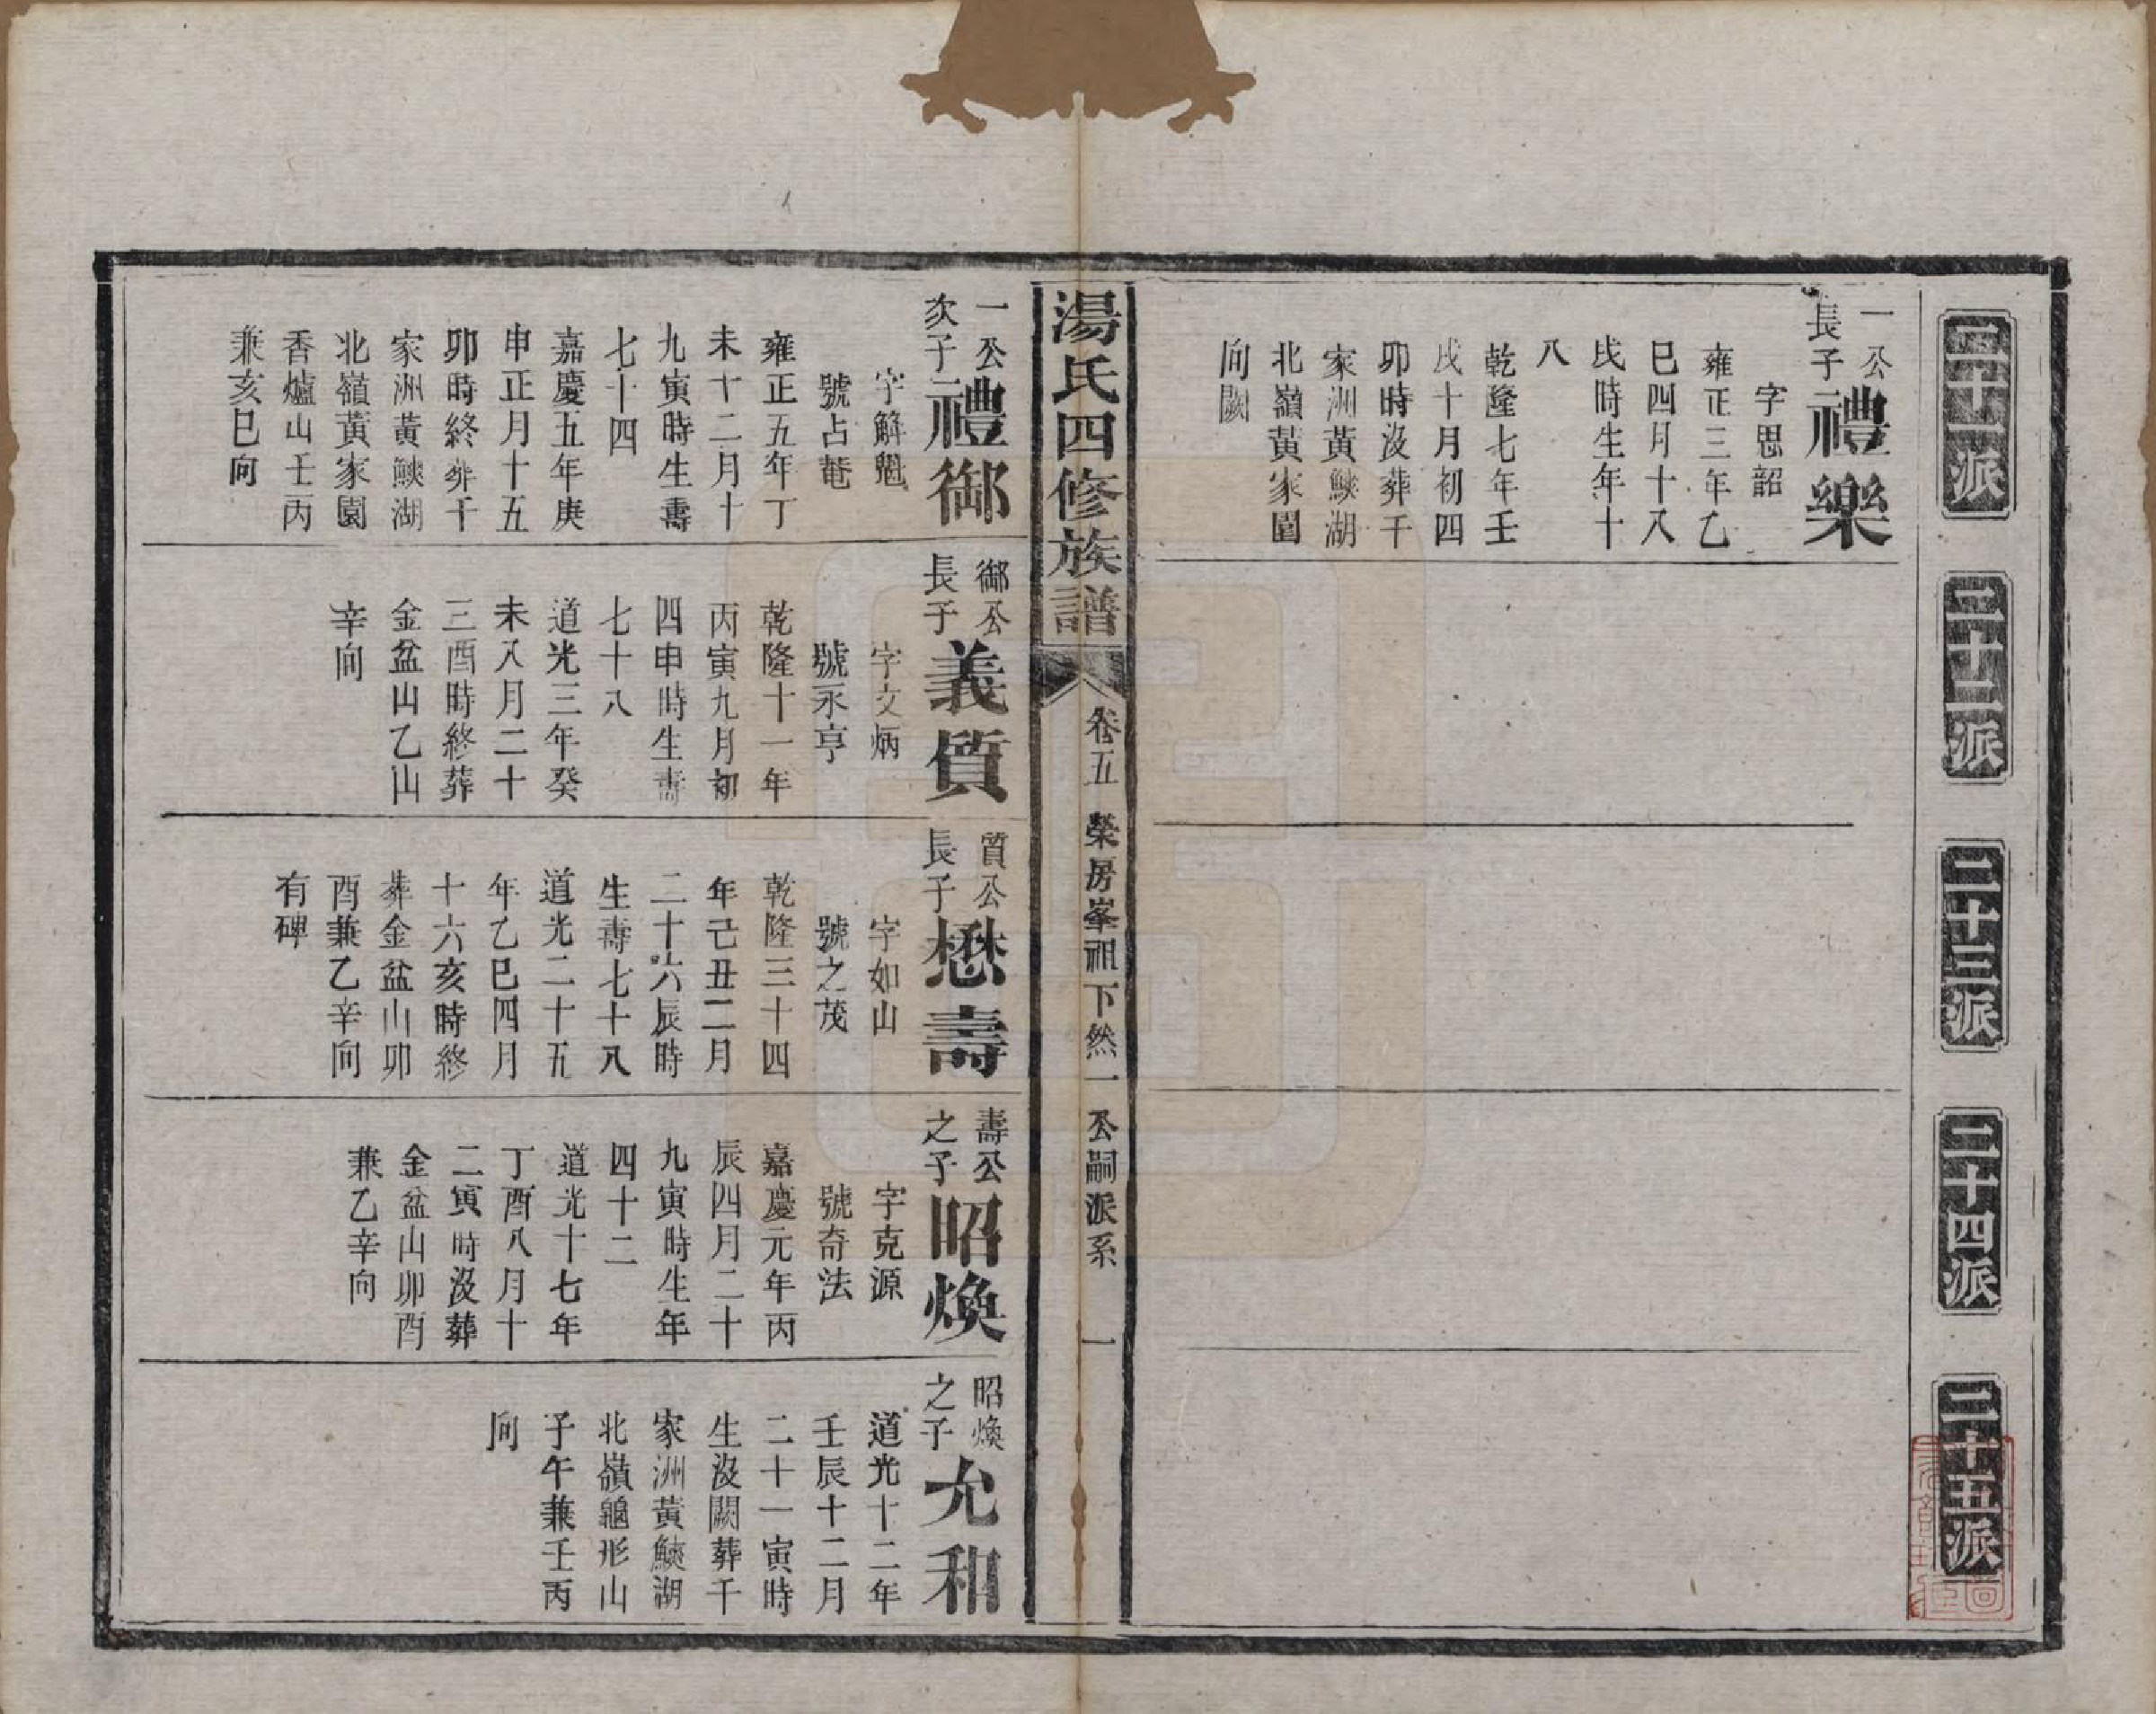 二十一派
二十二派
二十三派
二十四派
二十五派
一公
長子
禮樂
字思韶
雍正三年乙
巳四月十八
戌時生年十
八
乾隆七年壬
戌十月初四
卯時沒葬千
家洲黃鰱湖
北嶺黃家園
向闕
湯氏四修族譜
卷五
榮房峯祖下然一公嗣派系
一
一公
次子
禮御
字解魁
號占菴
雍正五年丁
未十二月十
九寅時生壽
七十四
嘉慶五年庚
申正月十五
卯時終葬千
家洲黃鰱湖
北嶺黃家園
香爐山壬丙
兼亥巳向
御公
長子
義質
字文炳
號永亨
乾隆十一年
丙寅九月初
四申時生壽
七十八
道光三年癸
未八月二十
三酉時終葬
金盆山乙山
辛向
質公
長子
懋壽
字如山
號之茂
乾隆三十四
年己丑二月
二十六辰時
生壽七十八
道光二十五
年乙巳四月
十六亥時終
葬金盆山卯
酉兼乙辛向
有碑
壽公
之子
昭煥
字克源
號奇法
嘉慶元年丙
辰四月二十
九寅時生年
四十二
道光十七年
丁酉八月十
二寅時沒葬
金盆山卯酉
兼乙辛向
昭煥
之子
允和
道光十二年
壬辰十二月
二十一寅時
生沒闕葬千
家洲黃鰱湖
北嶺龜形山
子午兼壬丙
向